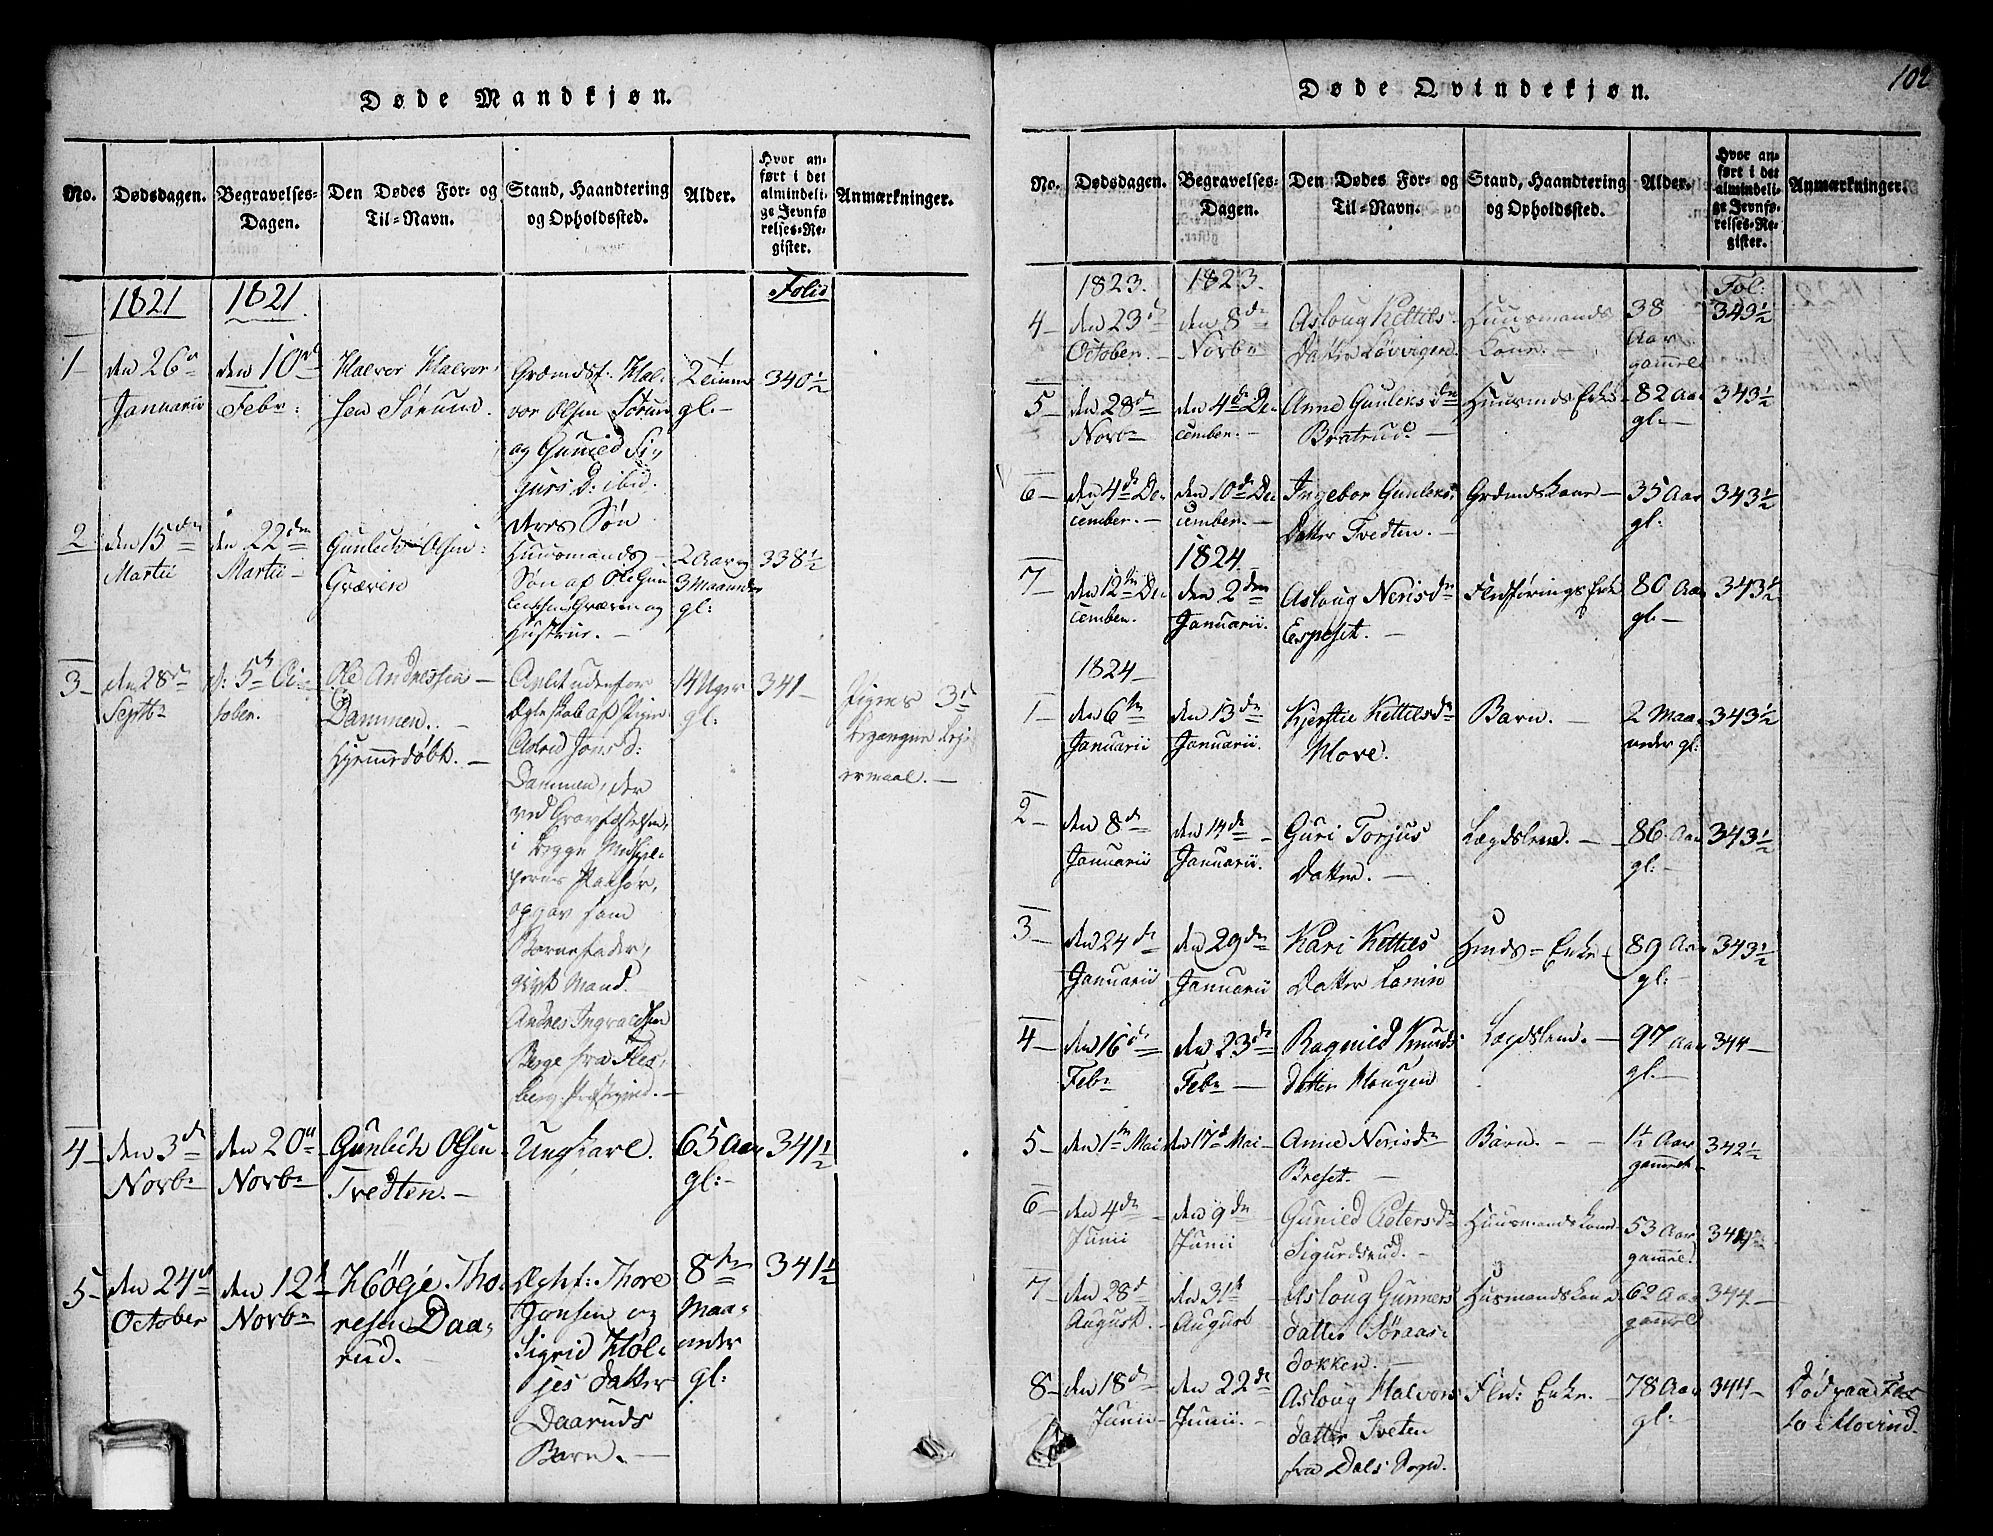 Døde Mandkjøn.
No.
Dødsdagen.
Begravelses-
Dagen.
Den Dødes For- og
Til-Navn.
Stand, Haandtering
og Opholdssted.
Alder.
Hvor an-
ført i det
almindeli-
ge Jevnfø-
relses-Re-
gister.
Anmærkninger.
1821
1821
Folio
1
den 26
Januarii
den 10
Febr:
Halvor Halvor
sen Sørum.
Grmdsf. Hal-
vor Olsen Sørum
og Gunild Si-
gurs D: ibid.
deres Søn
gl.
340½
2
den 15den
Martii
den 22den
Martii
Gunleck Olsen
Græven
Huusmands
Søn af Ole Gun
Græven og
Hustrue.
2 Aar og
3 Maaneder
gl:
338½
3
den 28de
Septbr
d: 5te Oc-
tober.
Ole Andressen
Dammen.
Hjemmedøbt.
Avlet udenfor
Ægteskab af Pigen
Astrid Jons d:
Dammen, der
ved
i begge Medhjel-
pernes Paahør,
opgav som
Barnefader,
gift Mand
Andres Ingvaldsen
Berge fra Fles-
berg Præstegield.
14 Uger
gl:
341
Pigens 3d
begangne Lejer-
ermaal.
4
den 3de
Novbr
den 20
Novbr
Gunleck Olsen
Tvedten.
Ungkarl.
65 Aar
gl:
341½
5
den 24
October
den 12t
Novbr
Høljе Tho-
resen Daa-
rud.
Thore
Jonsen og
Sigrid Høl-
jes datter
Daaruds
Barn.
8te
Maa-
neder
gl:
341½
102
Døde Qvindekjøn.
No.
Dødsdagen.
Begravelses-
Dagen.
Den Dødes For- og
Til-Navn.
Stand, Haandtering
og Opholdssted.
Alder.
Hvor an-
ført i det
almindeli-
ge Jevnfø-
relses-Re-
gister.
Anmærkninger.
1823.
1823.
Fol:
4
den 23de
October.
den 8de
Novbr
Asloug Kettils
Datter Løvvigen
Huusmands
Kone.
38
Aar
gammel
343½
5
den 28de
Novbr
den 4de De-
cember.
Anne Gunleks dn
Bratrud.
Huusmds Enke
82 Aar
gl.
343½
6
den 4de De-
cember.
den 10de De
cember.
Ingebor Gunleks
Datter Tvedten.
Grdmds Kone
35 Aar
gl.
343½
1824
7
den 12te De
cember.
den 2den
Januarii.
Asloug Neris dn
Espeset.
Flodførings Enke
80 Aar
gl.
343½
1824
1
den 6te
Januarii
den 13de
Januarii.
Kjersti Kettils dn
Move.
Barn.
2 Maa-
neder gl:
343½
2
den 8de
Januarii
den 14de
Januarii.
Guri Torjus
Datter.
Lægdslem.
86 Aar
gl.
343½
3
den 24de
Januarii
den 29de
Januarii
Kari Kettils
Datter
Hmds = Enke
89 Aar
gl.
343½
4
den 16de
Febr
den 23de
Febr
Ragnild Knuds
datter Hougen
Lægdslem.
97 Aar
gl.
344
5
den 1te Mai
den 17d Mai
Anne Neris dn
Breset.
Barn.
1½ Aar
gammel
342½
6
den 4de
Junii
den 9de
Junii
Gunild Peters dn
Sigurdsrud.
Huusmandskone
53 Aar
gammel
344
7
den 28d
August.
den 31te
August
Asloug Gunners
datter Søraas-
dokken.
Husmandskone
62 Aar
gammel
344
8
den 18de
Junii
den 22de
Junii.
Asloug Halvors
datter Tveten
fra Dals Sogn.
Flod: Enke.
78 Aar
gl:
344
Død paa
i Hovind.